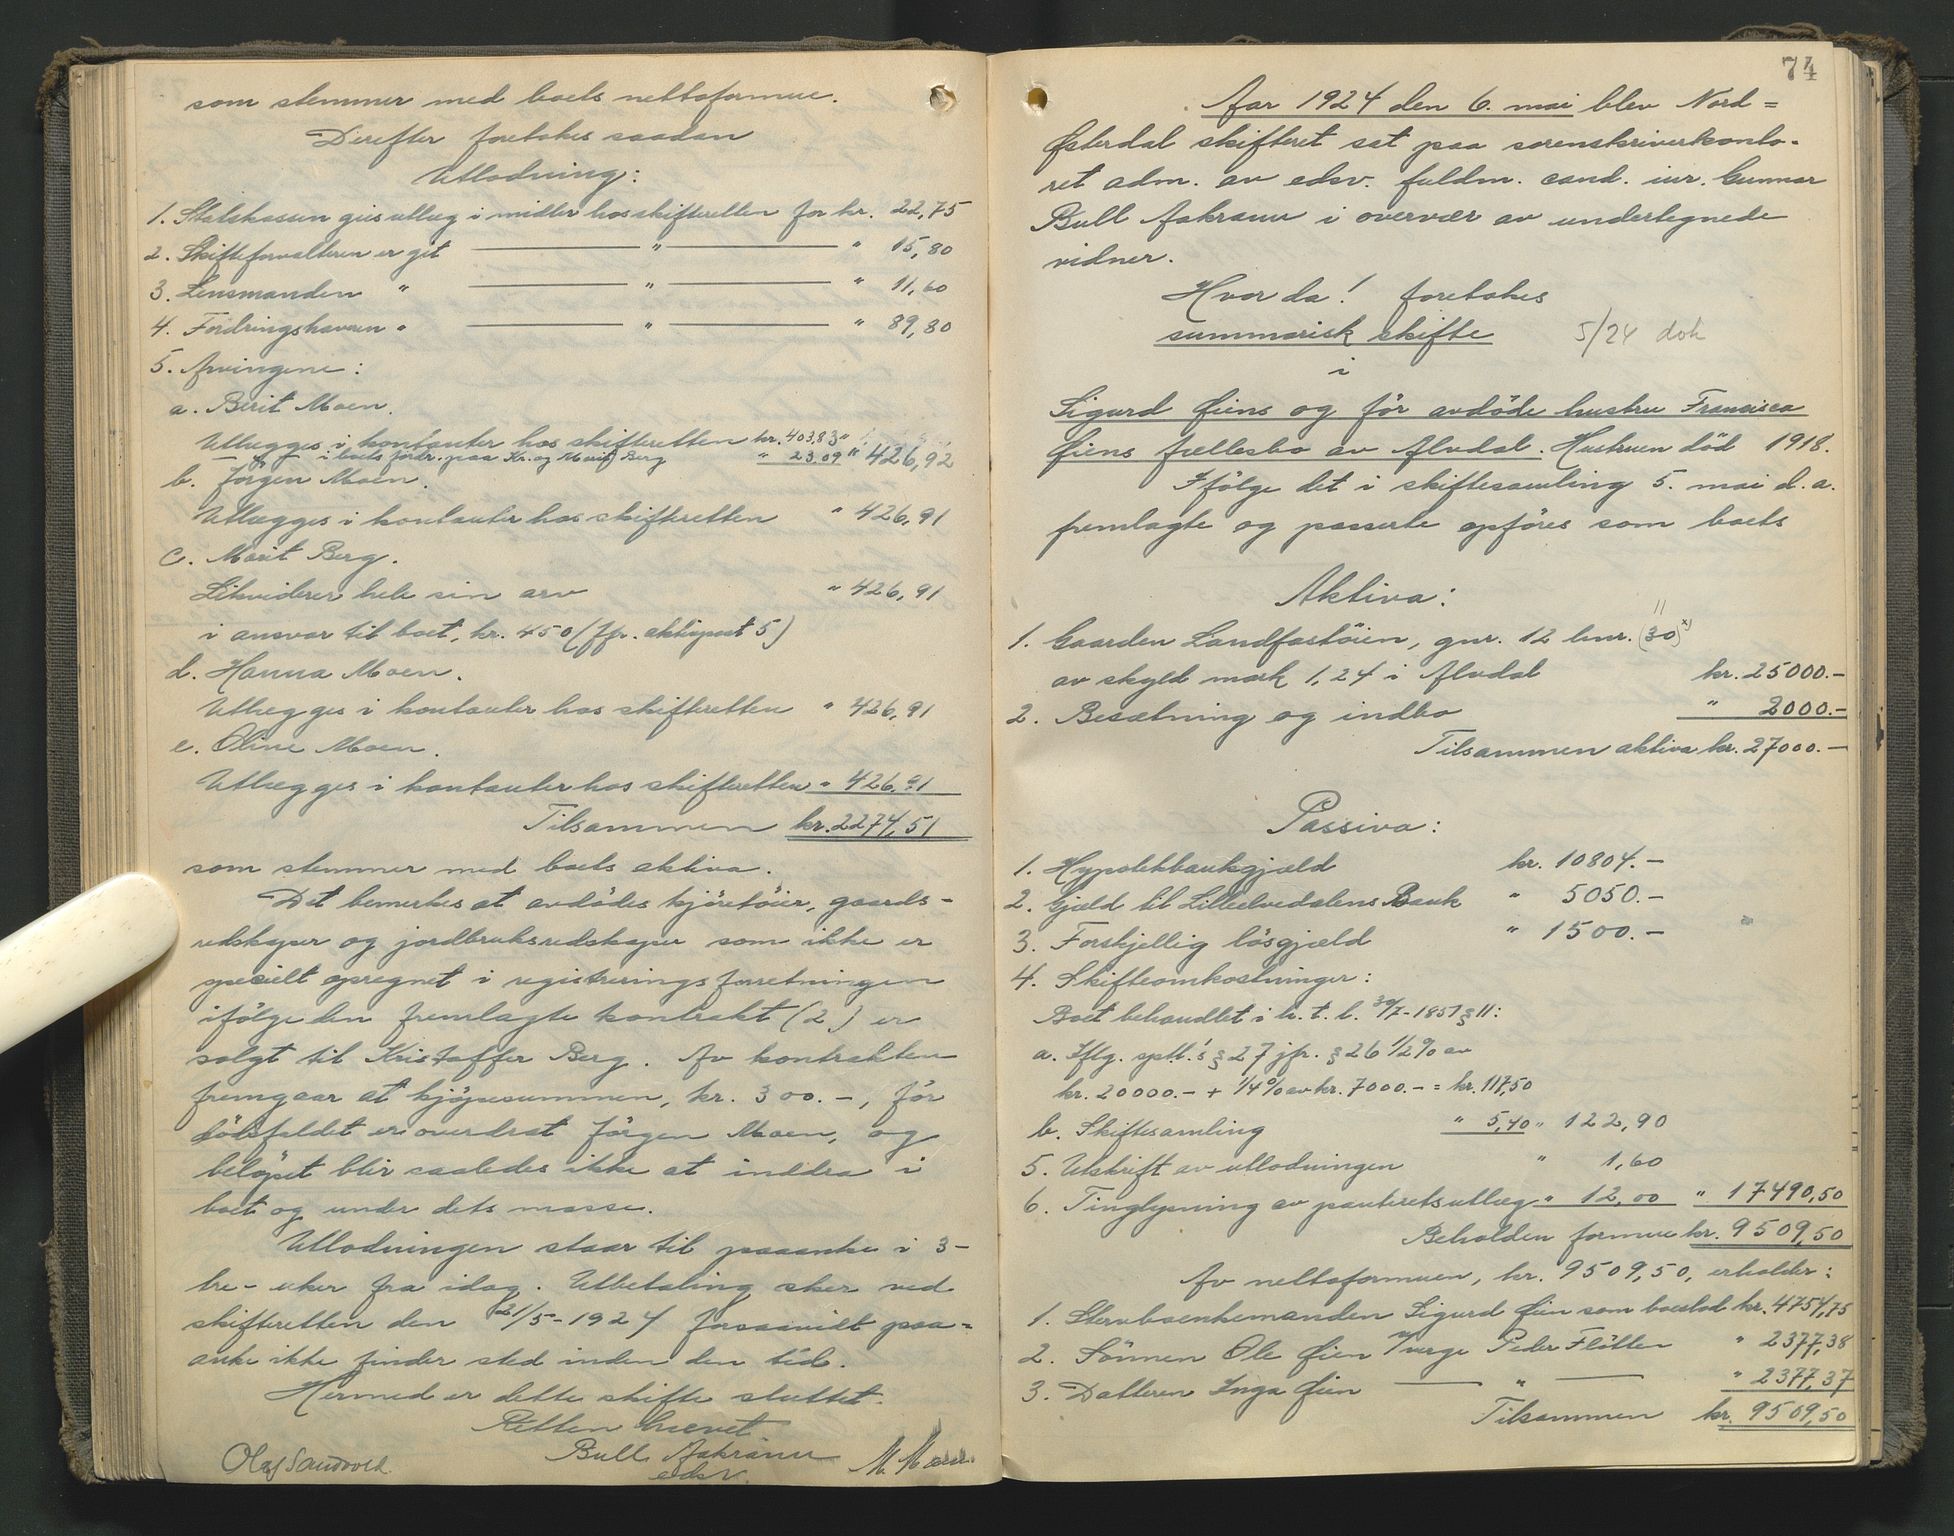 som stemmer med boets nettoformue.
Derefter foretokes saadan
Utlodning:
1. Statskassen gis utlæg i midler hos skifteretten for kr. 22,75
2. Skifteforvalteren er git — " — " 15,80
3. Lensmanden " — " — " 11,60
4. Fordringshaveren " — " — " 89,80
5. Arvingene:
a. Berit Moen.
Utlægges i kontanter hos skifteretten kr. 403,83 "
— " — i boets fordr. paa Kr. og Marit Berg " 23,09 " 426,92
b. Jörgen Moen.
Utlægges i kontanter hos skifteretten " 426,91
c. Marit Berg.
Likviderer hele sin arv " 426,91
i ansvar til boet, kr. 450 (jfr. aktivpost 5)
d. Hanna Moen.
Utlægges i kontanter hos skifteretten " 426,91
e. Oline Moen.
Utlægges i kontanter hos skifteretten " 426,91
Tilsammen kr. 2274,51
som stemmer med boets aktiva.
Det bemerkes at avdödes kjöretöier, gaards-
redskaper og jordbruksredskaper som ikke er
specielt opregnet i registreringsforretningen
ifölge den fremlagte kontrakt (2) er
solgt til Kristoffer Berg. Av kontrakten
fremgaar at kjöpesummen, kr. 300.-, för
dödsfaldet er overdrat Jörgen Moen, og
belöpet blir saaledes ikke at inddra i
boet og under dets masse.
Utlodningen staar til paaanke i 3-
tre- uker fra idag. Utbetaling sker ved
skifteretten den 21/5-1924 forsaavidt paa=
anke ikke finder sted inden den tid.
Hermed er dette skifte sluttet.
Retten hævet
Bull Aakrann
edsv.
Olaf Sandvold
M. Moen
74
Aar 1924 den 6. mai blev Nord=
Østerdal skifteret sat paa sorenskriverkonto-
ret adm. av edsv. fuldm. cand. jur. Gunnar
Bull Aakrann i overvær av undertegnede
vidner.
Hvor da! foretokes
summarisk skifte 5/24 dok
i
Sigurd Øiens og för avdöde hustru Francisca
Øiens fællesbo av Alvdal. Hustruen död 1918.
Ifölge det i skiftesamling 5. mai d.a.
fremlagte og passerte opföres som boets
Aktiva:
11
1. Gaarden Landfastöien, gnr. 12 bnr. (30) x)
av skyld mark 1,24 i Alvdal kr. 25000.-
2. Besætning og indbo " 2000.-
Tilsammen aktiva kr. 27000.-
Passiva:
1. Hypotekbankgjæld kr. 10804.-
2. Gjæld til Lilleelvedalens Bank " 5050.-
3. Forskjellig lösgjæld " 1500.-
4. Skifteomkostninger:
Boet behandlet i h. t. l. 30/7-1851 § 11:
a. Iflg. sptl.'s § 27 jfr. § 26 1/2% av
kr. 20000.- + 1/4% av kr. 7000.- = kr. 117,50
b. Skiftesamling " 5,40 " 122,90
5. Utskrift av utlodningen " 1,60
6. Tinglysning av panteretsutlæg " 12,00 " 17490,50
Beholden formue kr. 9509,50
Av nettoformuen, kr. 9509,50, erholder:
1. Stervboenkemanden Sigurd Øien som boeslod kr. 4754,75
2. Sönnen Ole Øien v/verge Peder Flötten " 2377,38
3. Datteren Inga Øien — " — " 2377,37
Tilsammen kr. 9509,50